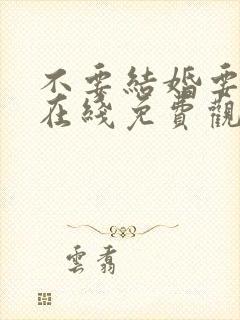 不要結婚要
在綫免費觀
雲翥